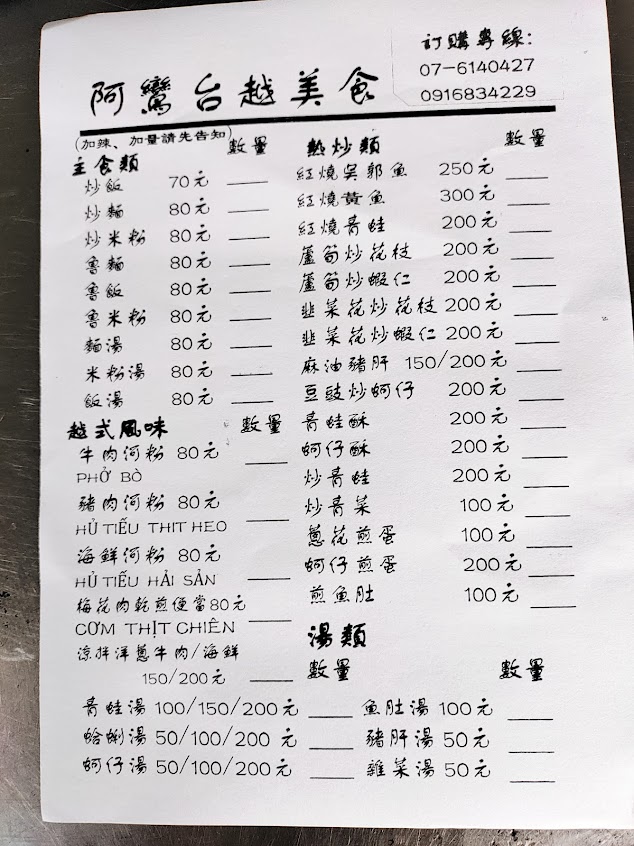 訂購專線:
07-6140427
0916834229
阿鸞台越美食
(加辣、加量請先告知)
主食類 數量
炒飯 70元
炒麵 80元
炒米粉 80元
魯麵 80元
魯飯 80元
魯米粉 80元
麵湯 80元
米粉湯 80元
飯湯 80元
越式風味 數量
牛肉河粉 80元
PHỞ BÒ
豬肉河粉 80元
HỦ TIẾU THIT HEO
海鮮河粉 80元
HỦ TIẾU HẢI SẢN
梅花肉乾煎便當80元
CƠM THỊT CHIÊN
涼拌洋蔥牛肉/海鮮
150/200元
熱炒類 數量
紅燒吳郭魚 250元
紅燒黃魚 300元
紅燒青蛙 200元
蘆筍炒花枝 200元
蘆筍炒蝦仁 200元
韭菜花炒花枝 200元
韭菜花炒蝦仁 200元
麻油豬肝 150/200元
豆豉炒蚵仔 200元
青蛙酥 200元
蚵仔酥 200元
炒青蛙 200元
炒青菜 100元
蔥花煎蛋 100元
蚵仔煎蛋 200元
煎魚肚 100元
湯類
數量 數量
青蛙湯 100/150/200元
魚肚湯 100元
蛤蜊湯 50/100/200 元
豬肝湯 50元
蚵仔湯 50/100/200元
雜菜湯 50元